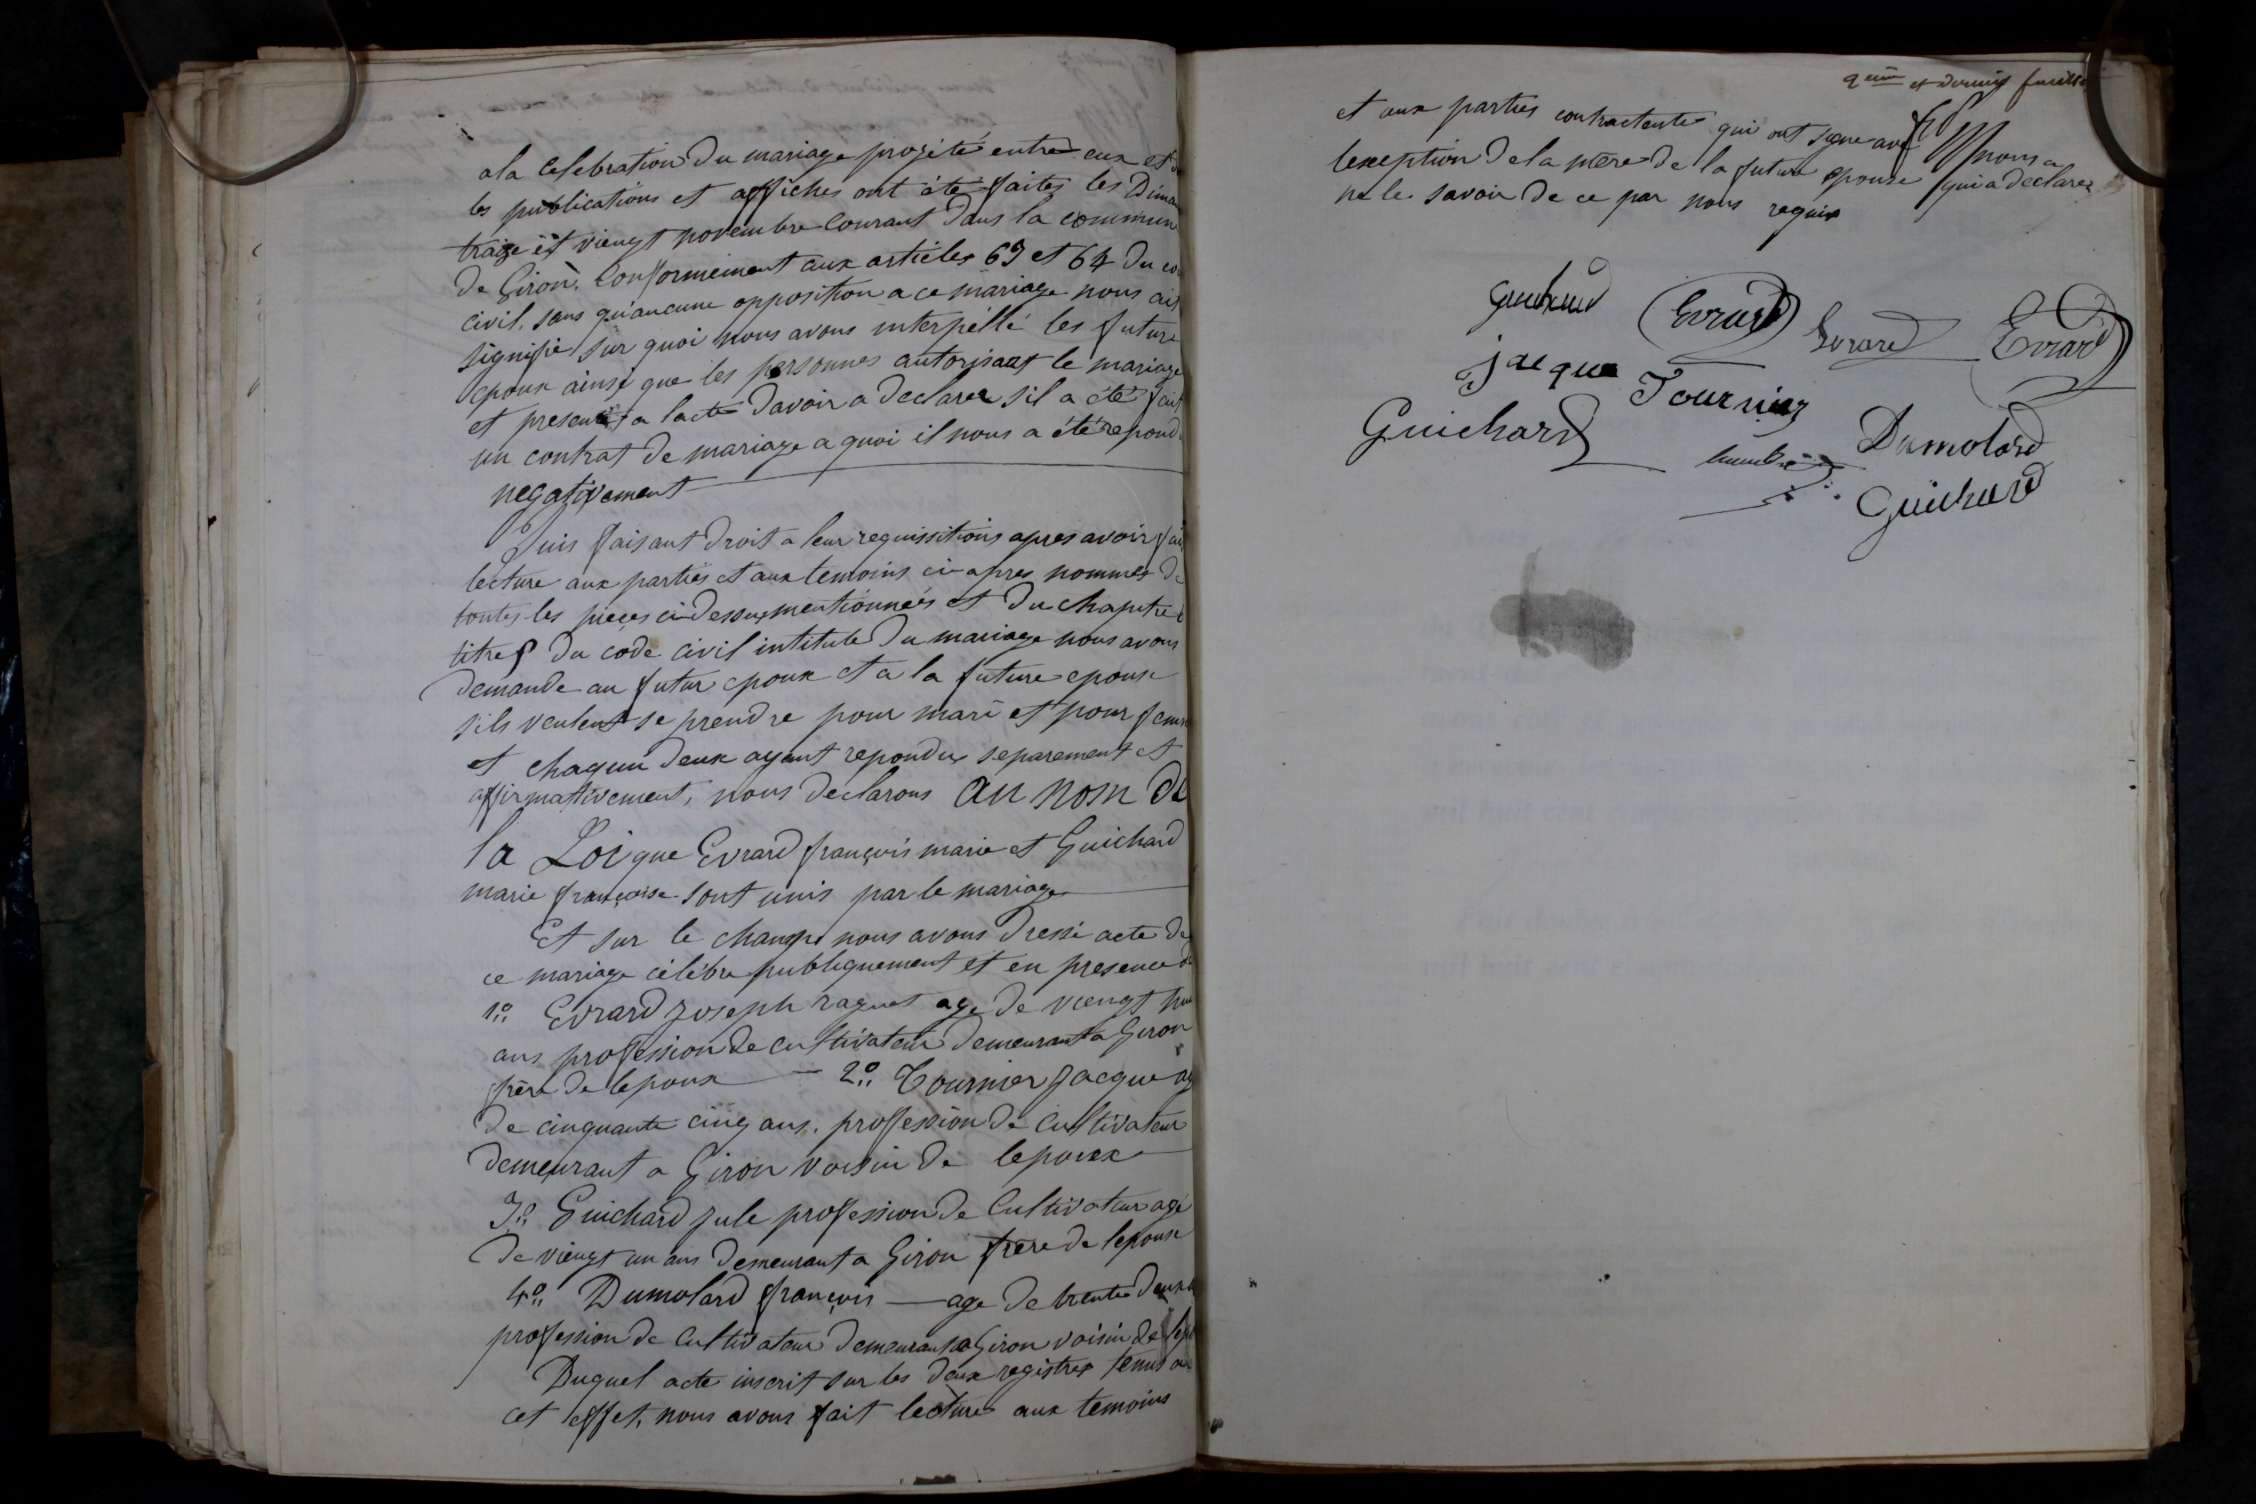 a la Celebration du mariage projété entre eux et
les publications et affiches ont été faites les Diman
traize et viengt novembre Courant dans la commune
de Giron. Conformement aux articles 63 et 64 du co
civil, sans qu'aucune opposition a ce mariage nous ait
signifié sur quoi nous avons interpéllé les future
epoux ainsi que les personnes autorisant le mariage
et presentes a lacte davoir a declarer sil a été fait
un contrat de mariage a quoi il nous a été repondu
negativement
Puis faisant droit a leur requissitions apres avoir fait
lecture aux parties et aux temoins ci apres nommés de
toutes les pieces ci dessus mentionnées et du chapitre
titre 5 du code civil intitule du mariage nous avons
demande au futur epoux et a la future epouse
sils veulent se prendre pour mari et pour femme
et chaqun deux ayant repondu separement et
affirmativement, nous declarons au nom de
la Loi que Evrard françois marie et Guichard
marie françoise sont unis par le mariage
Et sur le champ nous avons dressé acte de
ce mariage célébre publiquement et en presence de
1º Evrard Joseph raguet age de viengt
ans profession de cultivateur demeurant a Giron
frère de lepoux — 2º Tournier Jacque ag
de cinquante cinq ans. proffession de Cultivateur
demeurant a Giron voisin de lepoux
3º Guichard Jule profession de Cultivateur agé
de viengt un ans demeurant a Giron frère de lepouse
4º Dumolard françois — age de trente deux
profession de Cultivateur demeurant a Giron voisin de
Duquel acte inscrit sur les deux registres tenus a
cet effet, nous avons fait lecture aux temoins
2eme et dernier feuillet
et aux parties contractentes qui ont signe avec nous a
lexeption de la mère de la future epouse qui a declarer
ne le savoir de ce par nous requis
Guichard Evrard Evrard Evrard
jacque Tournier
Guichard Dumolard
Guichard